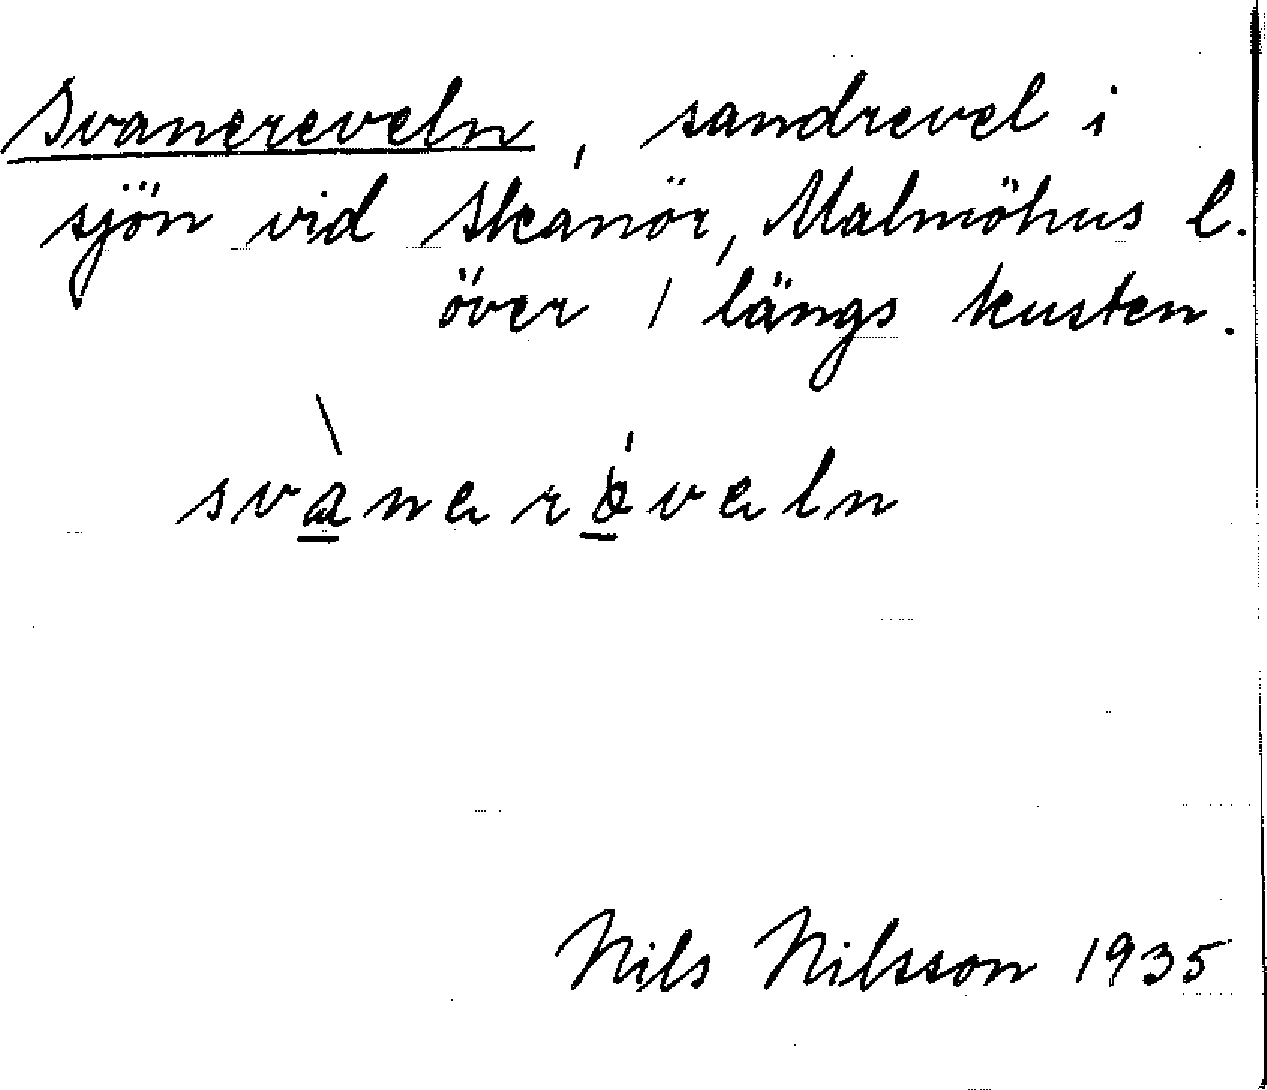 Svanereveln, sandrevel i
sjön vid Skanör, Malmöhus l.
över / längs kusten.
Nils Nilsson 1935